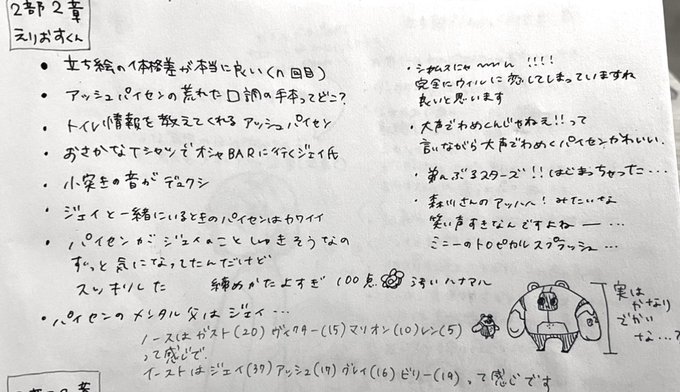 2部2章
えりおすくん
• 立ち絵の体格差が本当に良い(n回目)
• アッシュパイセンの荒れた口調の手本ってどこ?
• トイレ情報を教えてくれるアッシュパイセン
• おさかなTシャツでオシャBARに行くジェイ氏
• 小突きの音がデュクシ
• ジェイと一緒にいるときのパイセンはカワイイ
• パイセンがジェイのことしゅきそうなの
ずっと気になってたんだけど
スッキリした 締めかたよすぎ 100点 汚いハナマル
• パイセンのメンタル父はジェイ…
ノースはガスト(20) ヴィクター(15) マリオン(10) レン(5)
って感じで
イーストはジェイ(37) アッシュ(17) グレイ(16) ビリー(19) って感じです
• シャムスにゃ〜〜ん!!!!
完全にウィルに恋してしまっていますね
良いと思います
• 大声でわめくんじゃねえ!!って
言いながら大声でわめくパイセンかわいい.
• あんぶるスターズ!!はじまっちゃった…
• 森川さんのアッハハ!みたいな
笑い声すきなんですよねー…
ミニーのトロピカルスプラッシュ…
実は
かなり
でかい
な…?